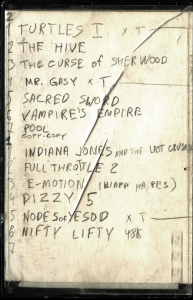 2 TURTLES I x T
2 THE HIVE
3 THE CURSE OF SHERWOOD
MR. GASY x T
5 SACRED SWORD
6 VAMPIRE'S EMPIRE
7 POOL
COPY-COPY
INDIANA JONES AND THE LAST CRUSADE
2 FULL THROTTLE 2
3 E-MOTION (WARP HAPES)
4 DIZZY 5
5 NODES OF YESOD x T
6 NIFTY LIFTY 48K
7